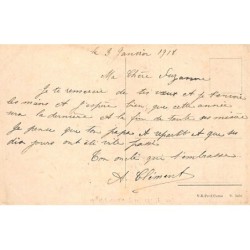 le 3 Janvier 1918
Ma Chère Suzanne
Je te remercie de tes vœux et je t'envoie
les miens et j'espère bien que cette année
sera la dernière et la fin de toute ces misère
Je pense que ton papa et reparti et que ses
dix jours ont été vite passé
Ton oncle qui t'embrasse
A. Clément